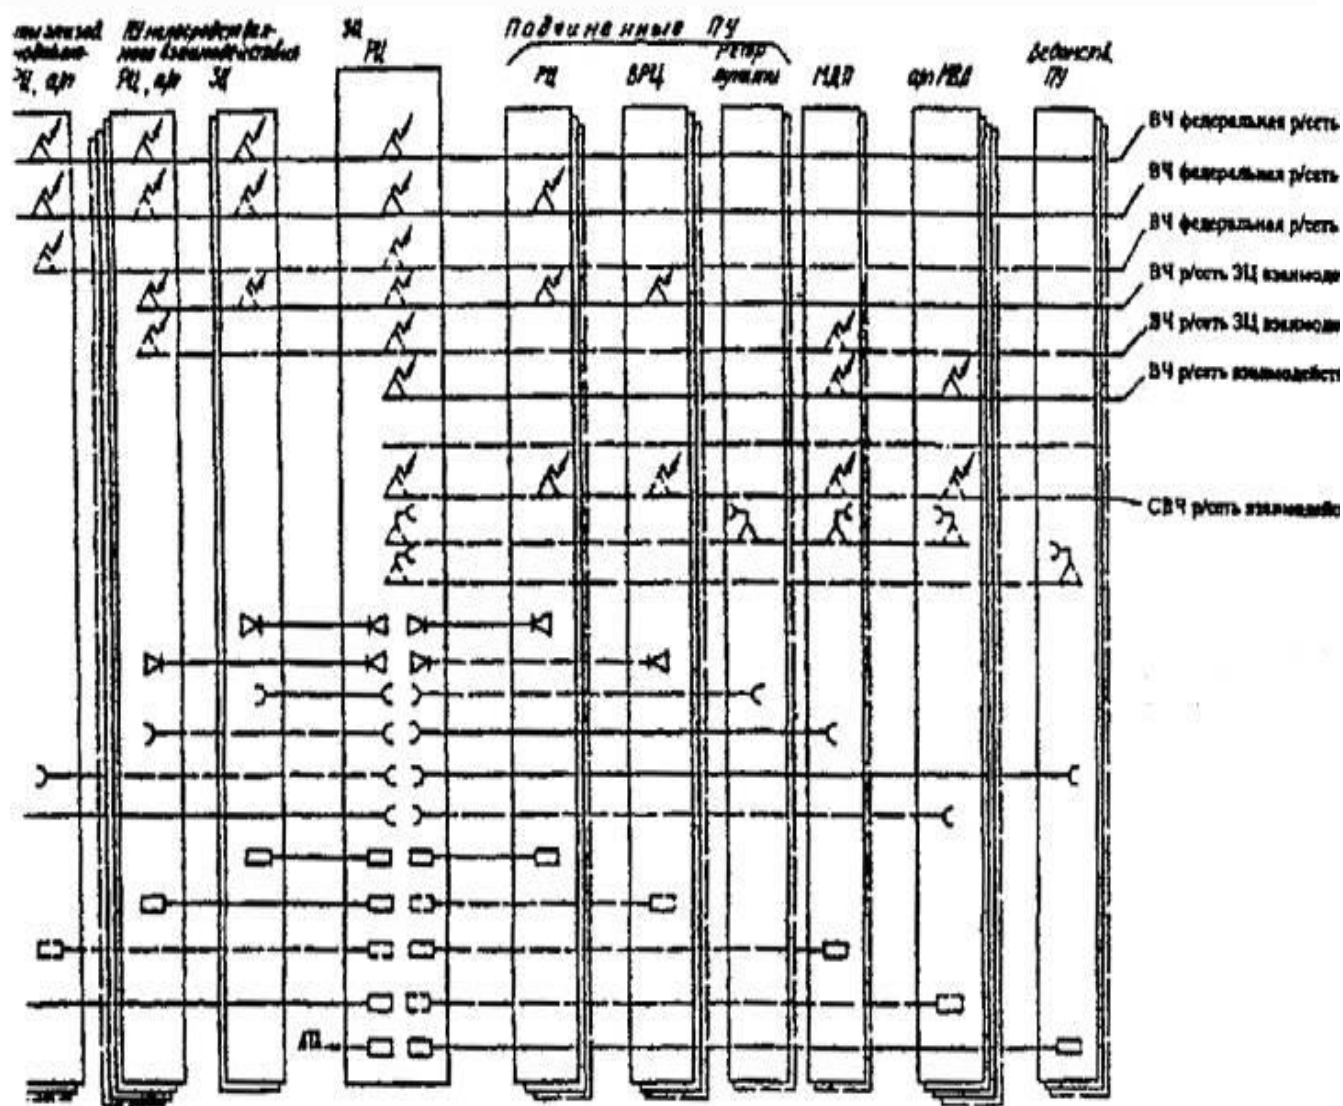 РЦ, а/п
ПУ непосредствен-
ного взаимодействия
РЦ, а/п
ЗЦ
ЗЦ
РЦ
Подчиненные ПУ
РЦ
ВРЦ
Ретр
пункты
МДП
а/п МВЛ
Ведомств.
ПУ
ВЧ федеральная р/сеть
ВЧ федеральная р/сеть
ВЧ федеральная р/сеть
ВЧ р/сеть ЗЦ взаимоде
ВЧ р/сеть ЗЦ взаимоде
ВЧ р/сеть взаимодейст
СВЧ р/сеть взаимодейс